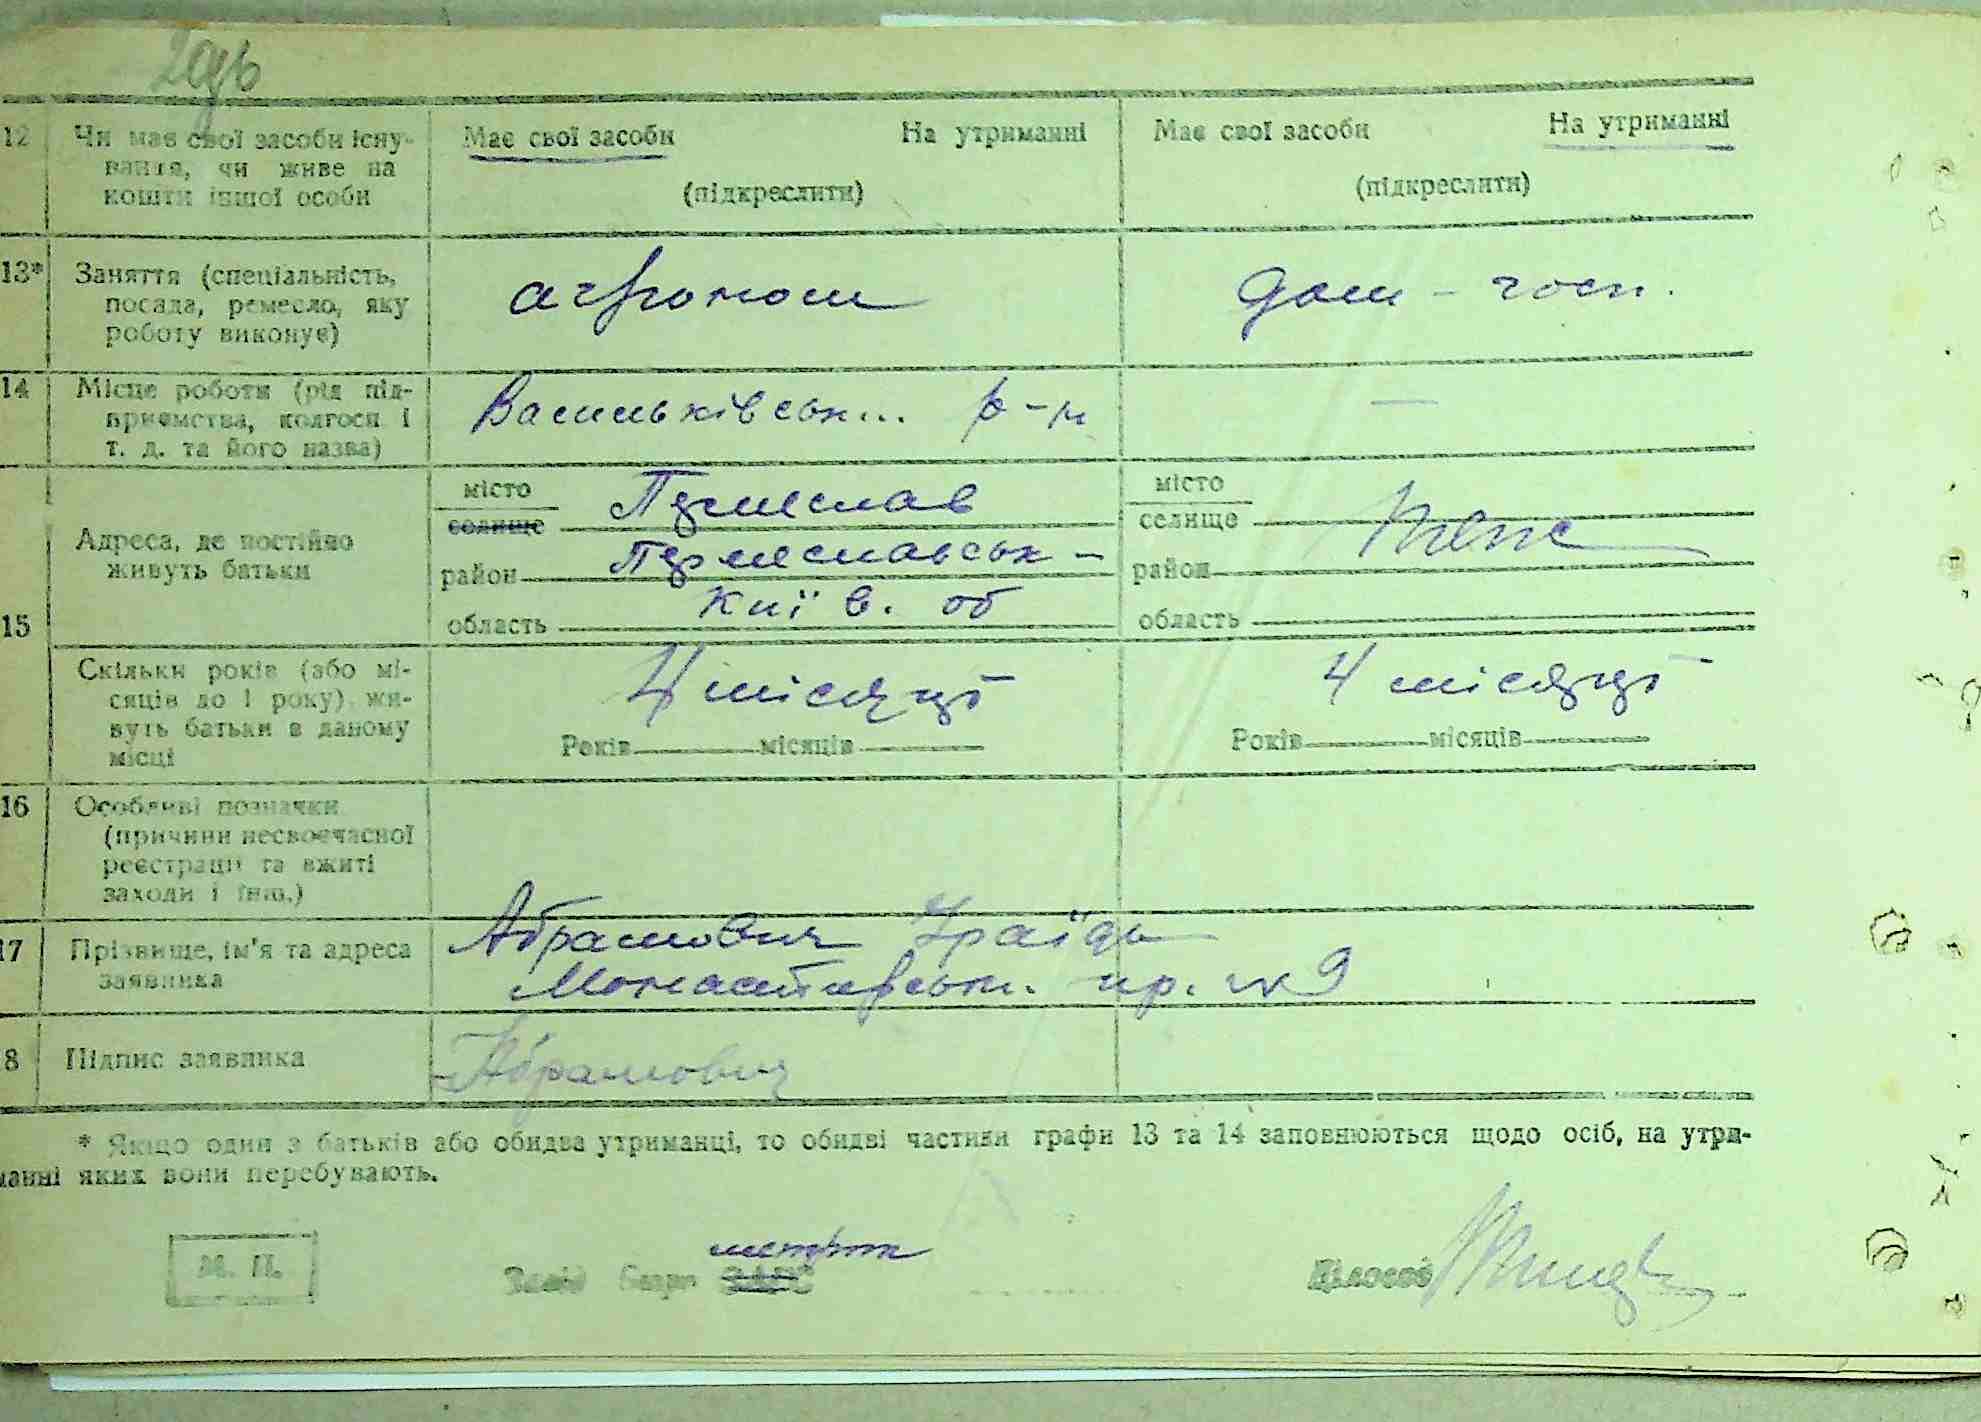 12 Чи має свої засоби існу- Має свої засоби На утриманні Має свої засоби На утриманні
вання, чи живе на
кошти іншої особи (підкреслити) (підкреслити)
13* Заняття (спеціальність, агроном дом - госп.
посада, ремесло, яку
роботу виконує)
14 Місце роботи (рід під- Васильківськ... р-н —
приємства, колгосп і
т. д. та його назва)
15 Адреса, де постійно
живуть батьки
місто Переяслав місто
селище селище
район Переяславськ - район
область Київ. об область
Скільки років (або мі- 4 місяці 4 місяці
сяців до 1 року) жи-
вуть батьки в даному Років місяців Років місяців
місці
16 Особливі позначки
(причини несвоєчасної
реєстрації та вжиті
заходи і інш.)
17 Прізвище, ім'я та адреса Абрамович Іраїда
заявника Монастирськ. пр. № 9
8 Підпис заявника Абрамович
* Якщо один з батьків або обидва утриманці, то обидві частини графи 13 та 14 заповнюються щодо осіб, на утри-
манні яких вони перебувають.
М. П. Зав. бюро ЗАГС метрик Діловод